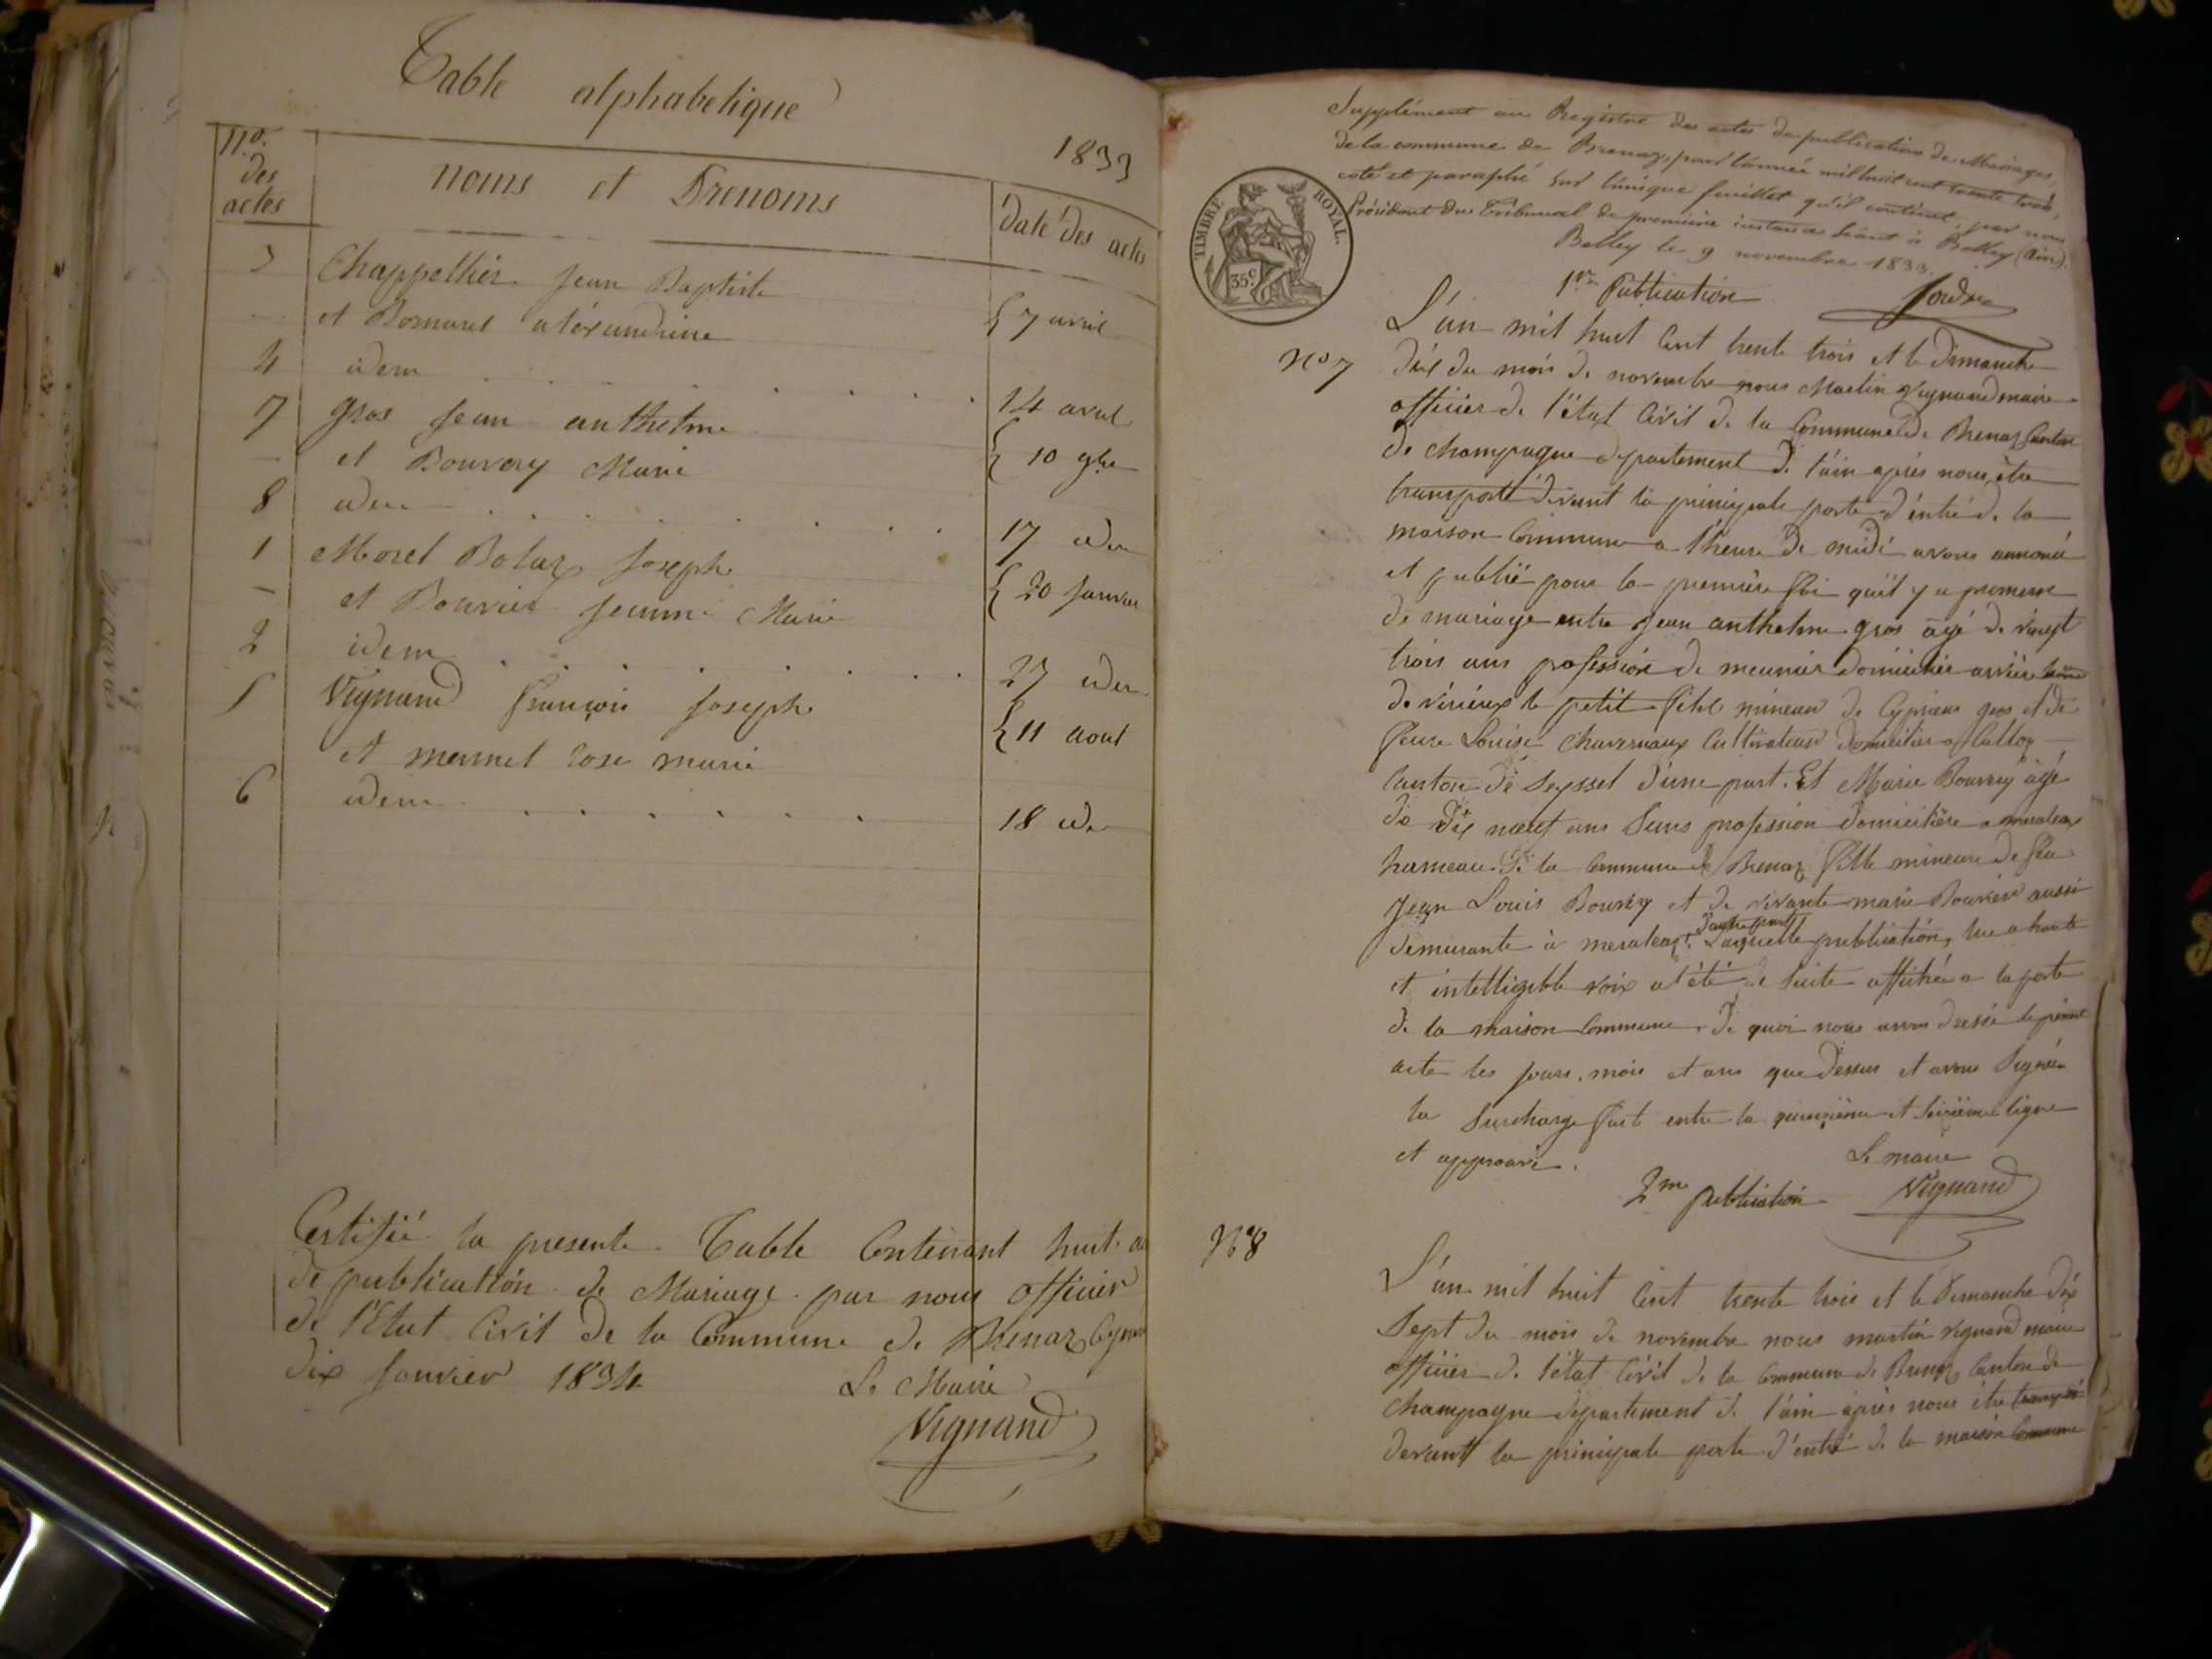 Table alphabetique
1833
n.os des actes
noms et Prenoms
date des actes
3 Chappellier Jean Baptiste
- et Bornarel aléxandrine { 7 avril
4 idem . . . . . 14 avril
7 gros Jean anthelme
- et Bouvery Marie { 10 9bre
8 idem . . . . . . 17 idem
1 Morel Bolaz Joseph
- et Bouvier Jeanne Marie { 20 Janvier
2 idem . . . . . . 27 idem
5 Vignand françois Joseph
et mermet rose marie { 11 aout
6 idem . . . . . . 18 idem
Certifié la presente Table Contenant huit
de publication de Mariage par nous officier
de l'Etat Civil de la Commune de Brenaz
dix Janvier 1834
Le Maire
Vignand
Supplément au Registre des actes de publication de Mariages,
de la commune de Brenaz, pour l'année mil huit cent trente trois,
coté et paraphé sur l'unique feuillet qu'il contient, par nous
Président du Tribunal de première instance séant à Belley (Ain).
Belley le 9 novembre 1833.
TIMBRE ROYAL.
35c.
1re Publication
N° 7
L'an mil huit Cent trente trois et le dimanche
dix du mois de novembre nous Martin Vignand maire
officier de l'état Civil de la Commune de Brenaz Canton
de champagne departement de l'ain aprés nous être
transporté devant la principale porte d'entré de la
maison Commune a l'heure de midi avons annoncé
et publié pour la premiére foi qu'il y a promesse
de mariage entre Jean anthelme gros agé de vingt
trois ans profession de meunier domicilier
de virieux le petit fils mineur de Cyprien gros et de
feue Louise Chavernaux Cultivateur domicilier a Culloz
Canton de Seyssel d'une part. Et Marie Bouvery agé
de dix neuf ans Sans profession domiciliére a meraleaz
hameau de la Commune de Brenaz fille mineure de feu
Jean Louis Bouvery et de vivante marie Bouvier aussi
demurante à meraleaz, d'autre part Laquelle publication, lue a haute
et intelligible voix a été de Suite affiché a la porte
de la maison Commune. De quoi nous avons dressé le présent
acte les jours, mois et ans que dessus et avons Signée
la Surcharge fait entre la quinziéme et Seiziéme ligne
et approuvé.
Le maire
Vignand
2me publication
N° 8
L'an mil huit Cent trente trois et le dimanche dix
Sept du mois de novembre nous martin vignand maire
officier de l'état Civil de la Commune de Brenaz Canton de
Champagne departement de l'ain aprés nous être transporté
devant la principale porte d'entré de la maison Commune